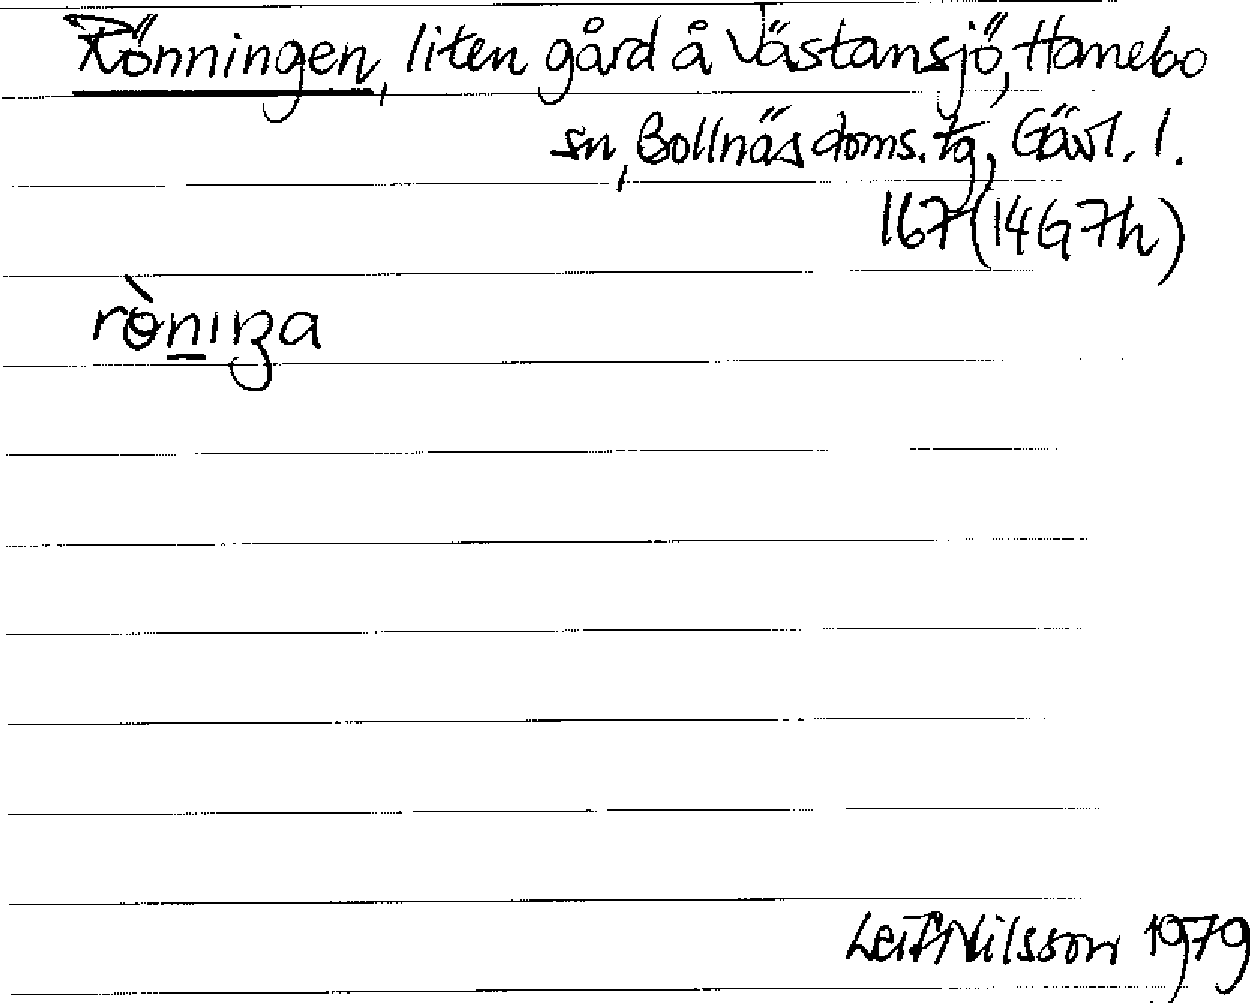 Rönningen, liten gård å Västansjö, Hanebo
sn, Bollnäs doms. tg, Gävl. l.
167 (14G7h)
rò̱nıŋa
Leif Nilsson 1979